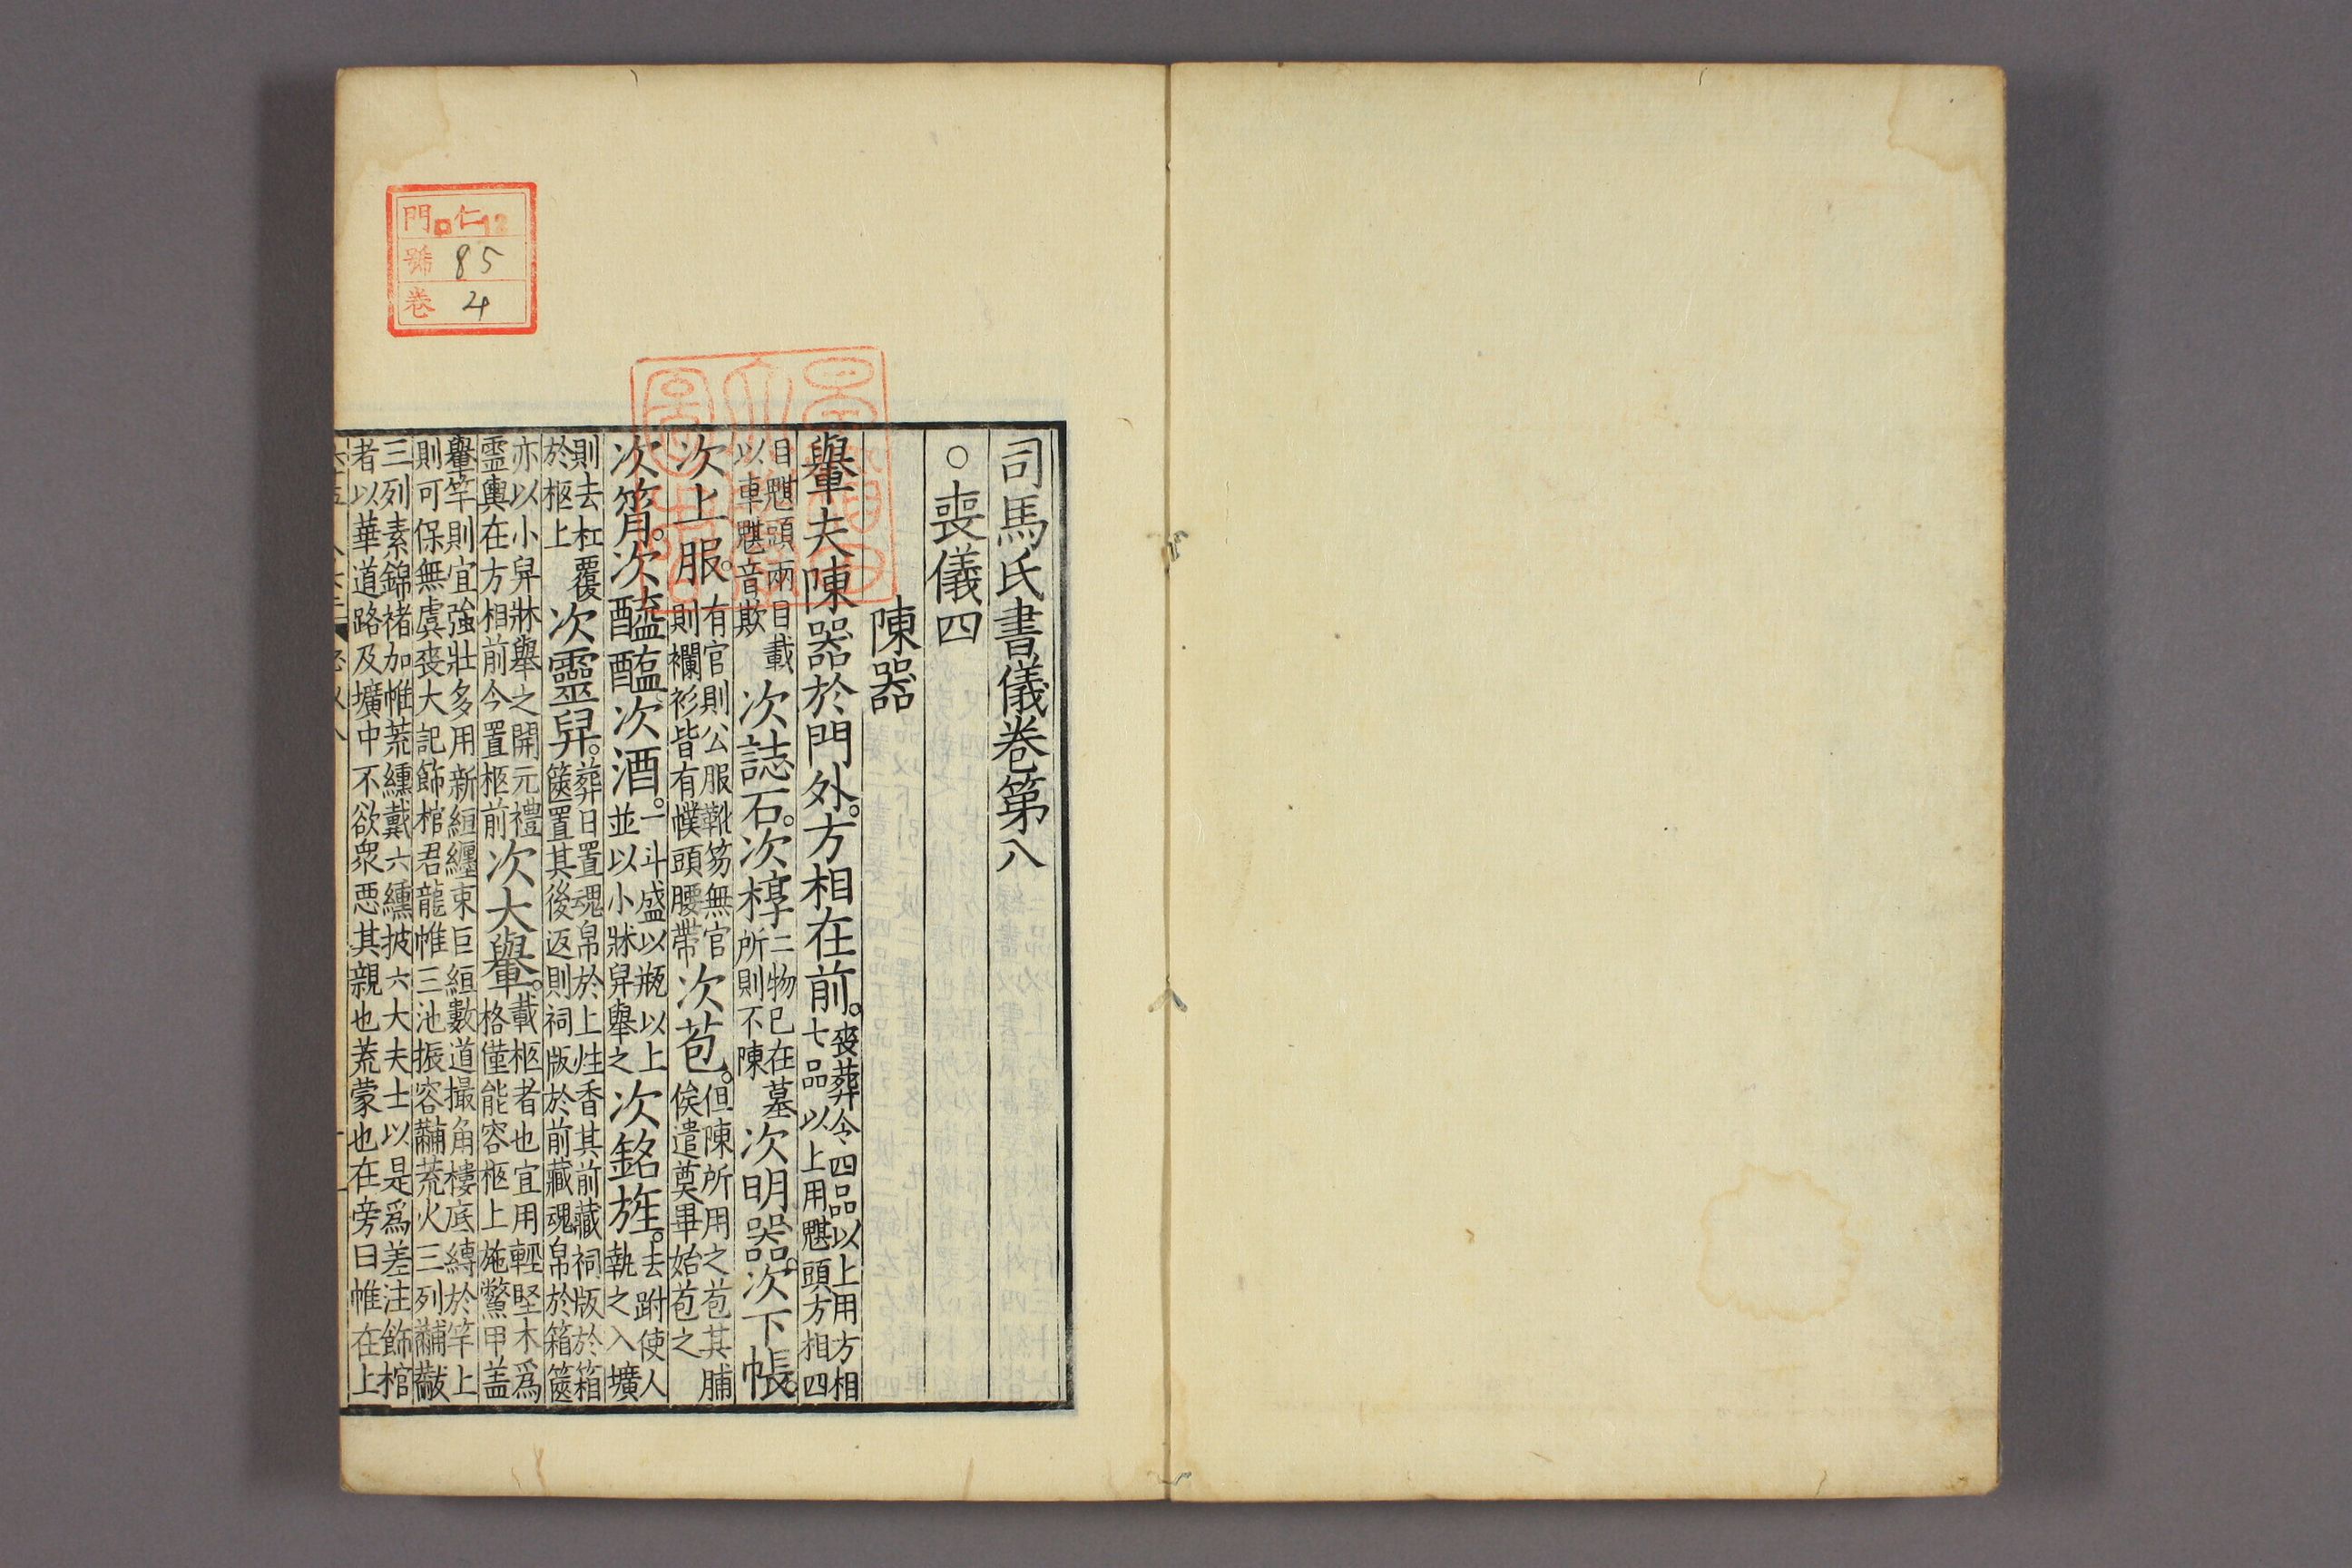 司馬氏書儀卷第八
○喪儀四
陳器
轝夫陳器於門外。方相在前。喪葬令四品以上用方相七品以上用魌頭方相四
目魌頭兩目載以車魌音欺次誌石。次椁二物已在墓所則不陳次明器。次下帳。
次上服。有官則公服靴笏無官則襴衫皆有幞頭腰帶次苞。但陳所用之苞其脯俟遣奠畢始苞之
次筲。次醯醢。次酒。一斗盛以瓶以上並以小牀舁舉之次銘旌。去跗使人執之入壙
則去杠覆於柩上次靈舁。葬日置魂帛於上炷香其前藏祠版於箱篋置其後返則祠版於前藏魂帛於箱篋
亦以小舁牀舉之開元禮靈輿在方相前今置柩前次大轝。載柩者也宜用輕堅木爲格僅能容柩上施鱉甲盖
轝竿則宜強壯多用新絙纏束巨絙數道撮角樓底縛於竿上則可保無虞喪大記飾棺君龍帷三池振容黼荒火三列黼黻
三列素錦褚加帷荒纁戴六纁披六大夫士以是爲差注飾棺者以華道路及壙中不欲衆惡其親也荒蒙也在旁曰帷在上
門 仁 12
號 85
卷 4